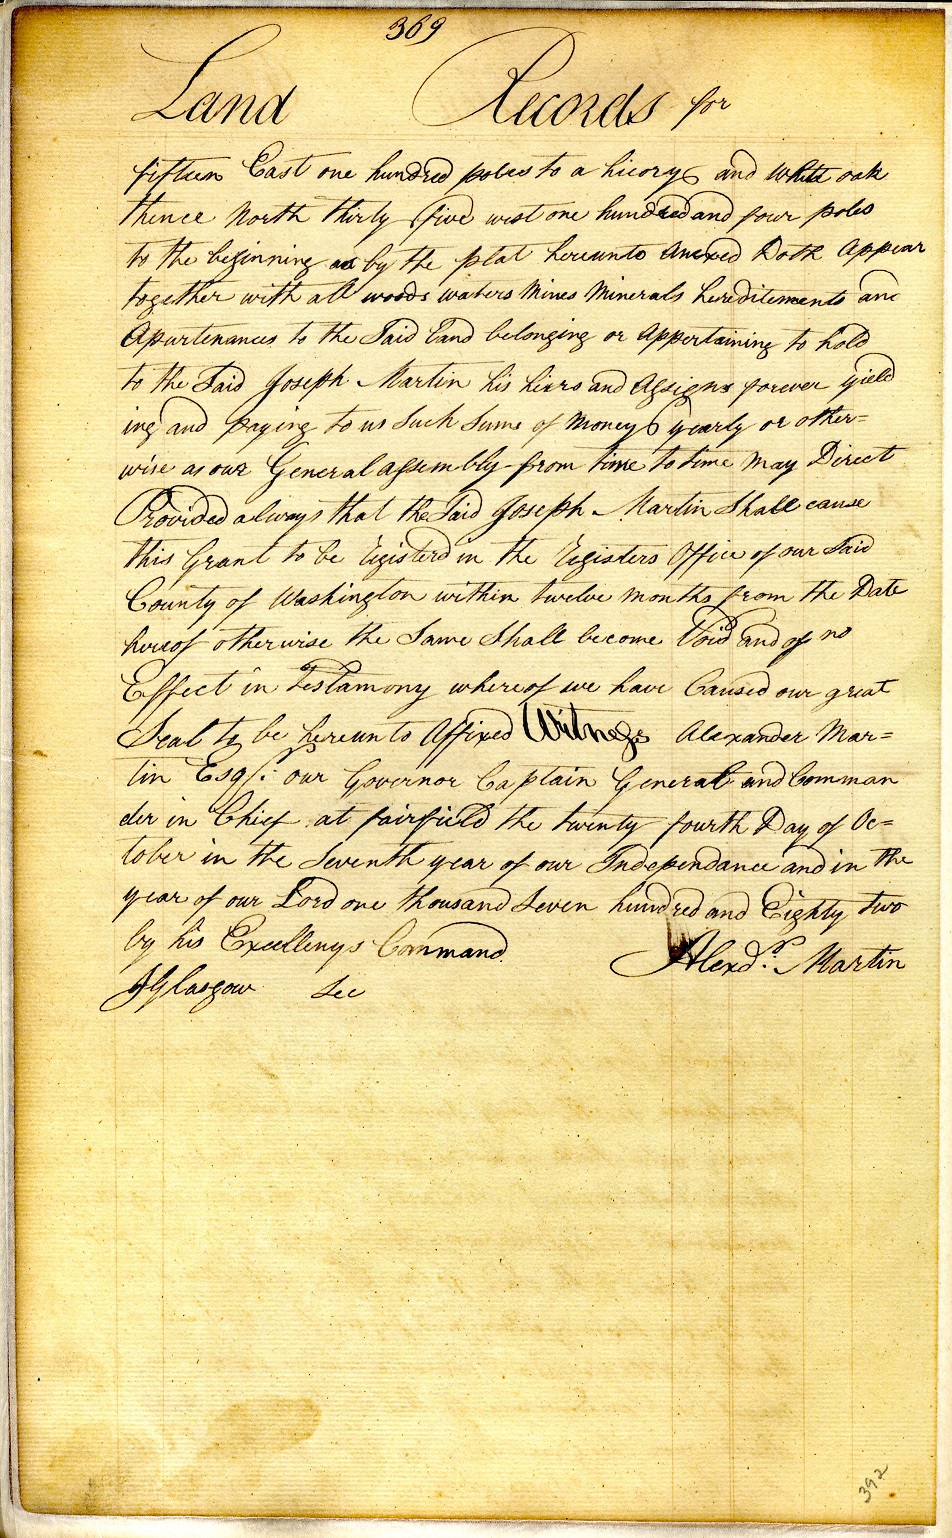 369
Land Records for
fifteen East one hundred poles to a hicory and White oak
thence North thirty five west one hundred and four poles
to the beginning as by the plat hereunto Anexed Doth Appear
together with all woods waters Mines Minerals hereditements and
Apurtenances to the Said Land belonging or Appertaining to hold
to the Said Joseph Martin his hiers and Assigns forever yield
ing and paying to us Such Sums of Moneys yearly or other=
wise as our General Assembly from time to time May Direct
Provided always that the Said Joseph Martin Shall cause
this Grant to be Registerd in the Registers Office of our Said
County of Washington within twelve months from the Date
hereof otherwise the Same Shall become Void and of no
Effect in Testamony whereof we have Caused our great
Seal to be hereunto Affixed Witness Alexander Mar=
tin Esqr: our Governor Captain General and Comman
der in Chief at fairfield the twenty fourth Day of Oc=
tober in the Seventh year of our Independance and in the
year of our Lord one thousand Seven hundred and Eighty two
by his Excellenys Command. Alexdr: Martin
JGlasgow Sec
392